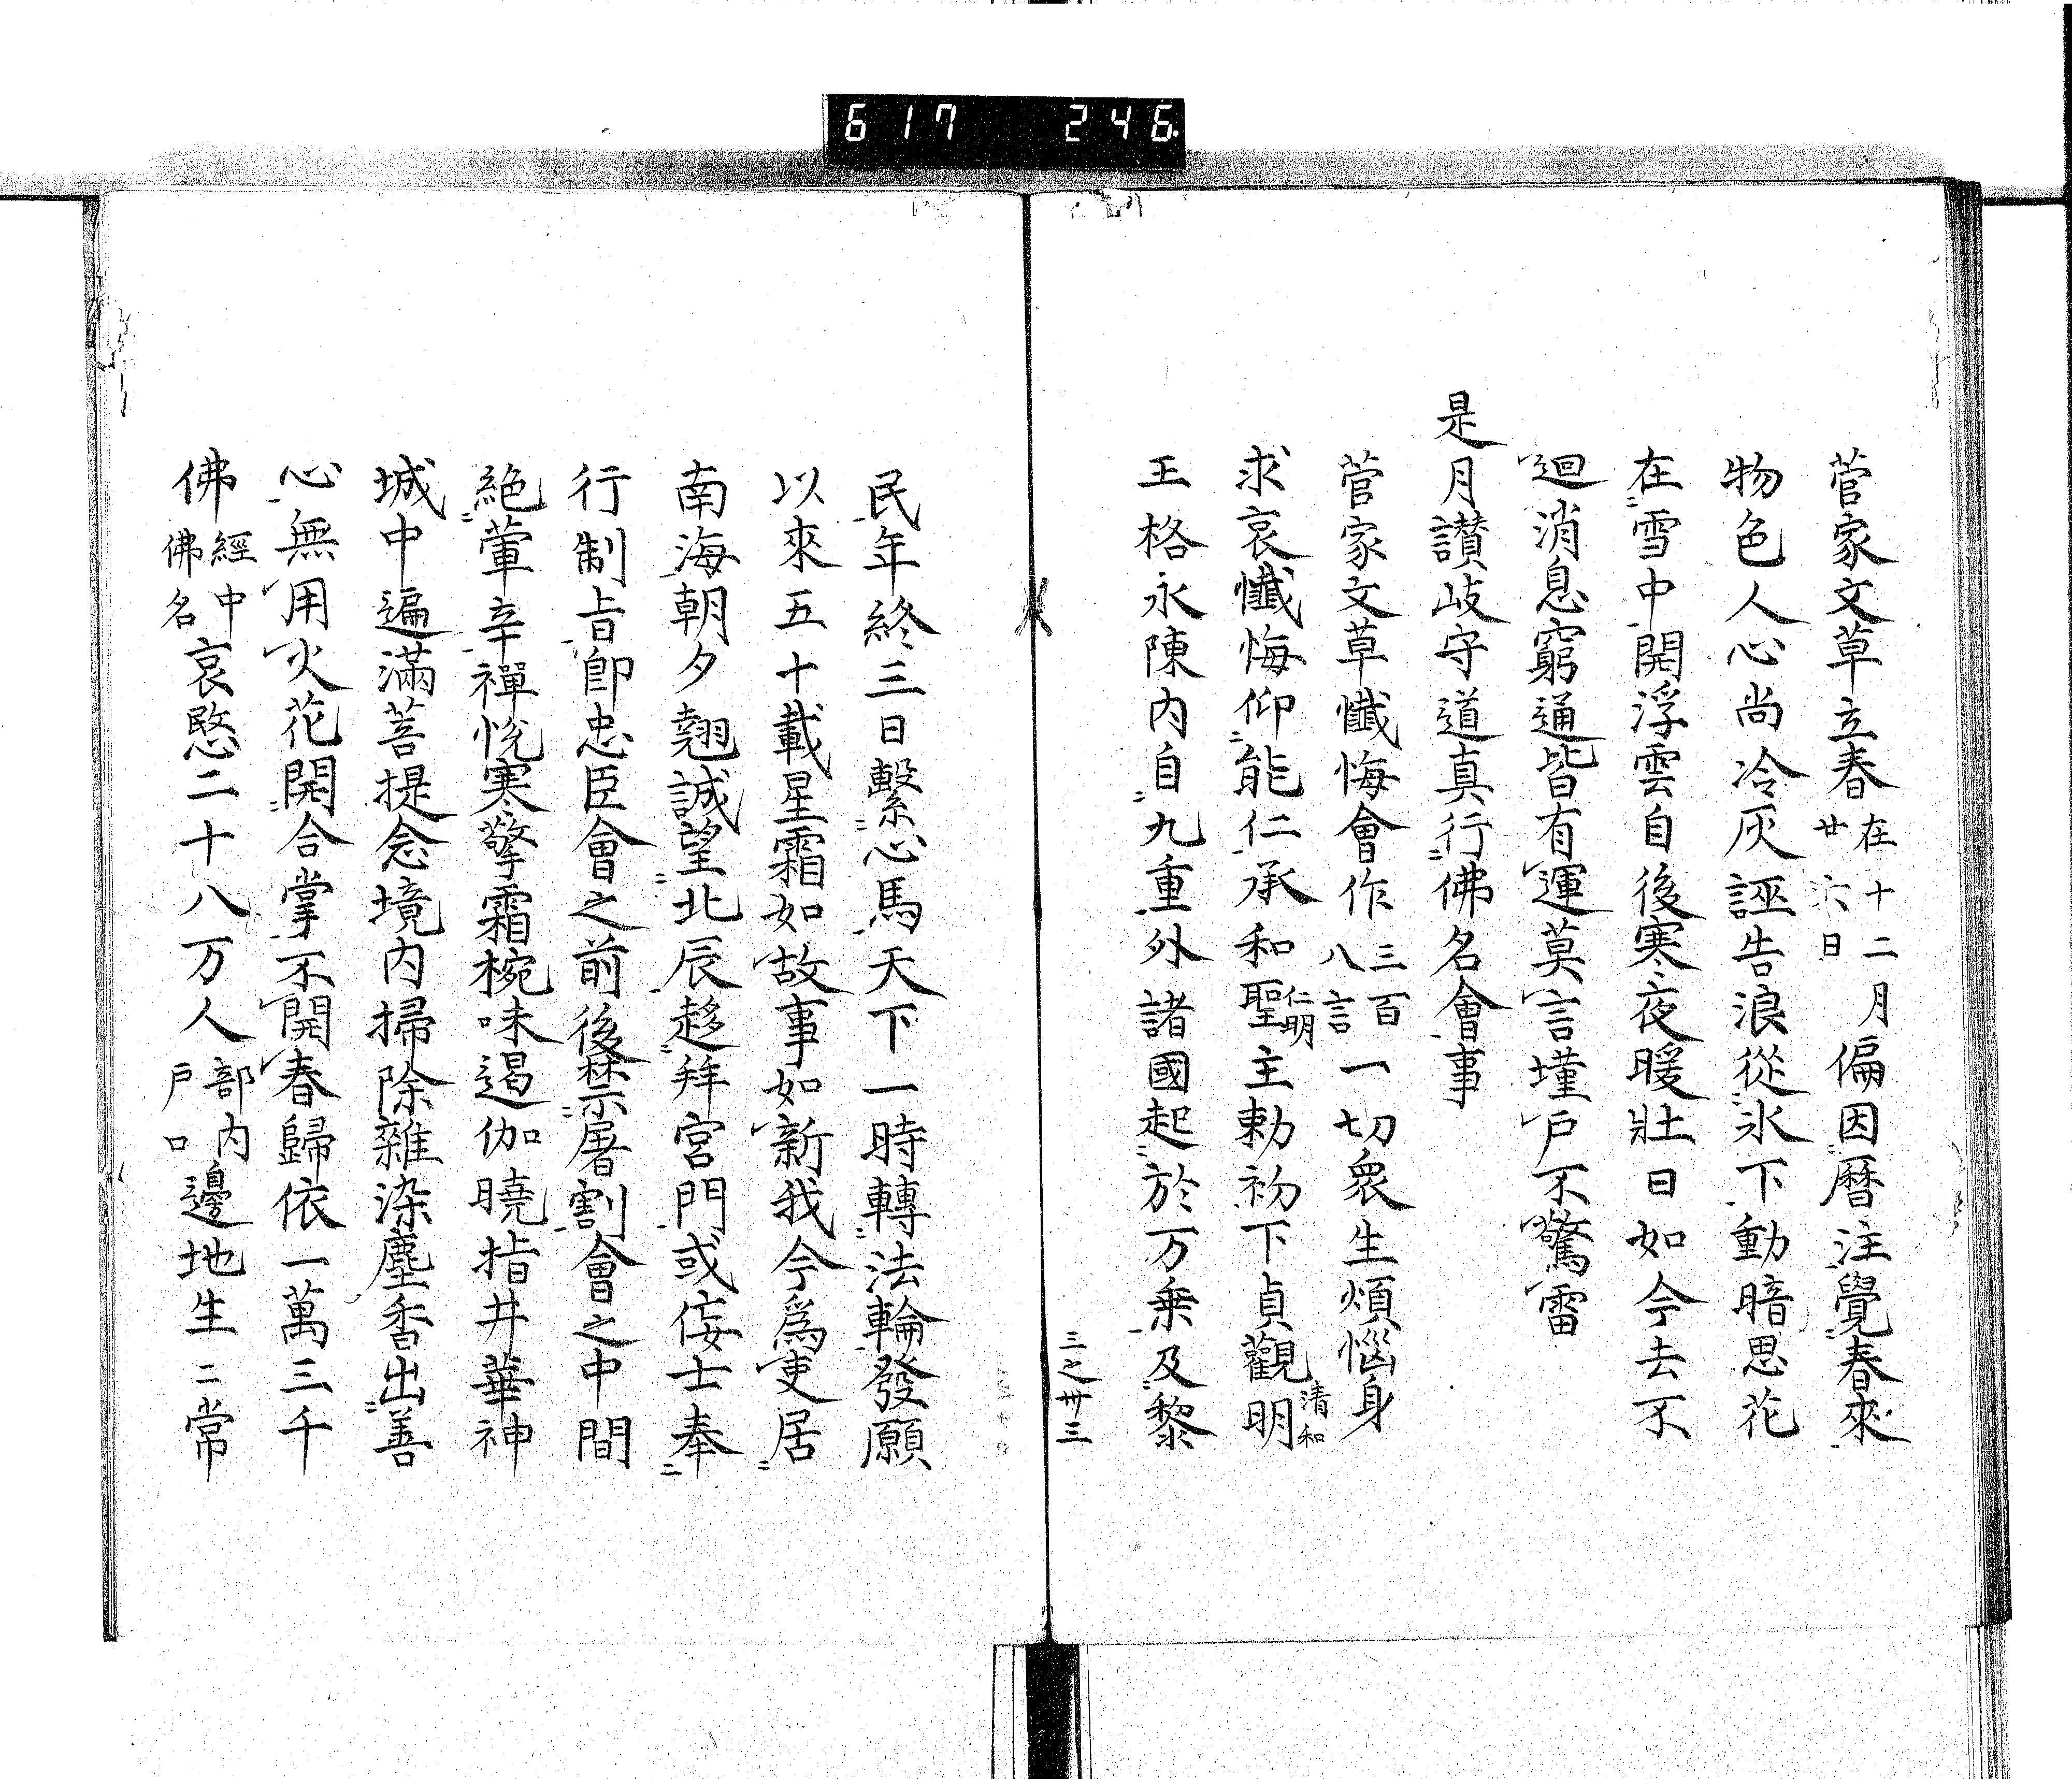 617 246
菅家文草立春在十二月廿六日偏因暦注覺春來
物色人心尚冷灰誣告浪從氷下動暗思花
在雪中開浮雲自後寒夜暖壯日如今去不
迴消息窮通皆有運莫言墐戸不驚雷
是月讃岐守道真行佛名會事
菅家文草懺悔會作三百八言一切衆生煩惱身
求哀懺悔仰能仁承和聖仁明主勅初下貞觀明清和
王格永陳内自九重外諸國起於万乗及黎
三之卅三
民年終三日繫心馬天下一時轉法輪發願
以來五十載星霜如故事如新我今爲吏居
南海朝夕翹誠望北辰趍拜宮門或侫士奉
行制旨即忠臣會之前後禁屠割會之中間
絶葷辛禪悅寒擎霜椀味遏伽曉指井華神
城中遍滿菩提念境内掃除雜染塵香出善
心無用火花開合掌不開春歸依一萬三千
佛經中佛名哀愍二十八万人部内戸口邊地生二常